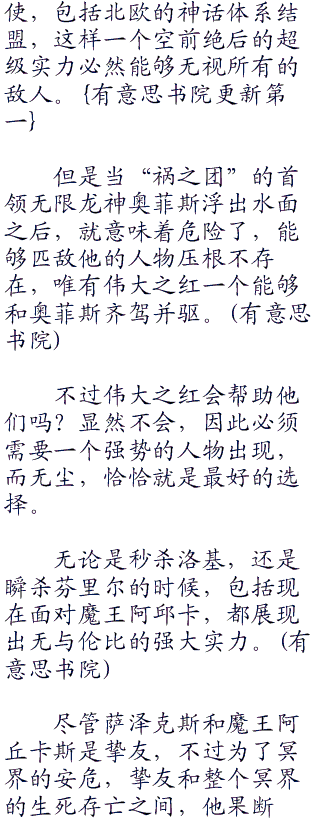 使，包括北欧的神话体系结
盟，这样一个空前绝后的超
级实力必然能够无视所有的
敌人。{有意思书院更新第
一}
但是当“祸之团”的首
领无限龙神奥菲斯浮出水面
之后，就意味着危险了，能
够匹敌他的人物压根不存
在，唯有伟大之红一个能够
和奥菲斯齐驾并驱。(有意思
书院)
不过伟大之红会帮助他
们吗？显然不会，因此必须
需要一个强势的人物出现，
而无尘，恰恰就是最好的选
择。
无论是秒杀洛基，还是
瞬杀芬里尔的时候，包括现
在面对魔王阿邱卡，都展现
出无与伦比的强大实力。(有
意思书院)
尽管萨泽克斯和魔王阿
丘卡斯是挚友，不过为了冥
界的安危，挚友和整个冥界
的生死存亡之间，他果断